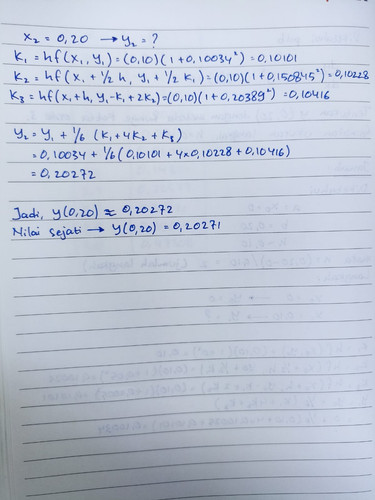 x₂ = 0,20 → y₂ = ?
K₁ = hf(x₁, y₁) = (0,10)(1+0,10034²) = 0,10101
K₂ = hf(x₁ + 1/2 h, y₁ + 1/2 K₁) = (0,10)(1+0,150845²) = 0,10228
K₃ = hf(x₁+h, y₁-K₁+2K₂) = (0,10)(1+0,20389²) = 0,10416
y₂ = y₁ + 1/6 (K₁+4K₂+K₃)
= 0,10034 + 1/6 (0,10101 + 4×0,10228 + 0,10416)
= 0,20272
Jadi, y(0,20) ≈ 0,20272
Nilai sejati → y(0,20) = 0,20271